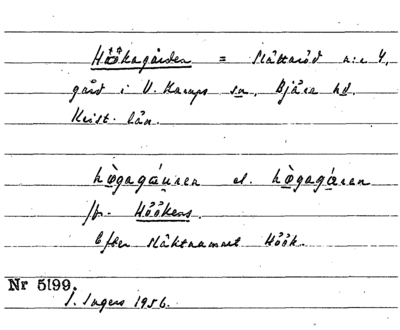 Höökagården = Slättaröd n:r 4,
gård i V. Karups sn, Bjäre hd.
Krist. län.
hògagáuren el. hògagáren
fr. Höökens.
Efter släktnamnet Höök.
Nr 5199.
I. Ingers 1956.